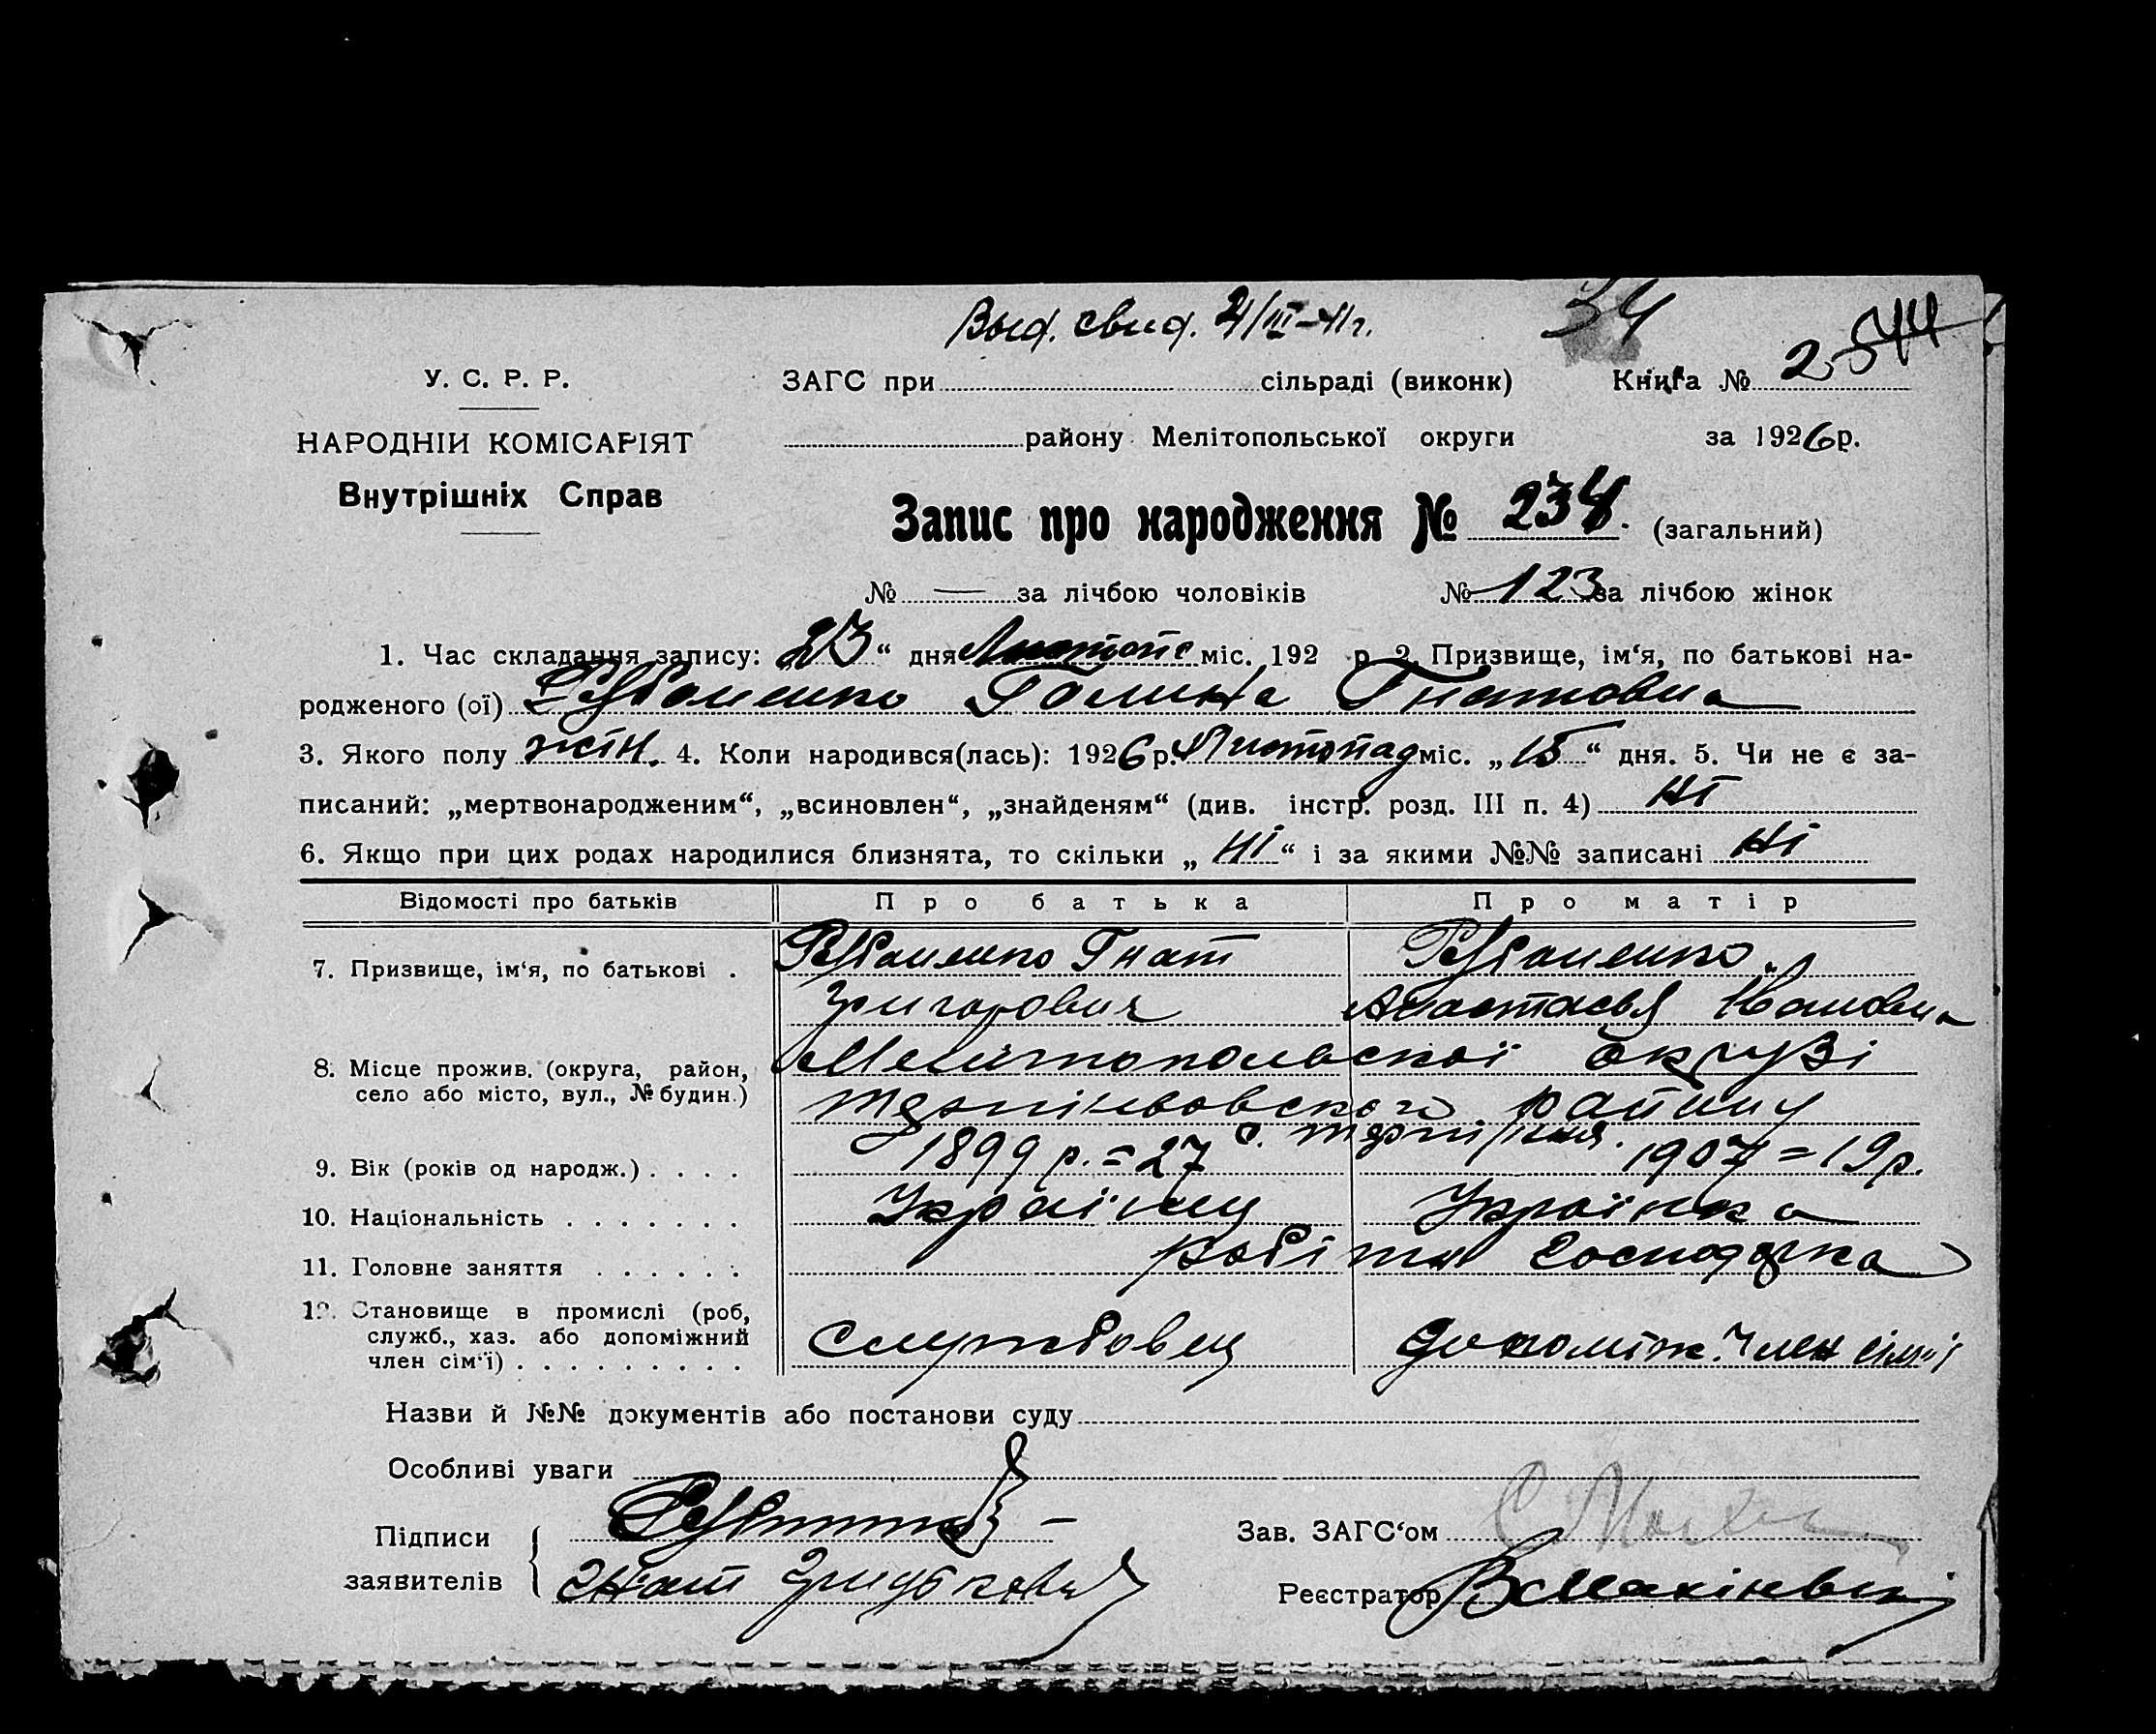 Выд. свид. 21/III-41г. 34
У. С. Р. Р. ЗАГС при сільраді (виконк) Книга № 2 544
НАРОДНІЙ КОМІСАРІЯТ району Мелітопольської округи за 1926 р.
Внутрішніх Справ
Запис про народження № 238. (загальний)
№ — за лічбою чоловіків № 123 за лічбою жінок
1. Час складання запису: 23 “ дня Листопа міс. 192 р. 2. Призвище, ім‘я, по батькові на-
родженого (ої) Галина Гнатовна
3. Якого полу жін. 4. Коли народився(лась): 1926 р. Листопад міс. „ 15 “ дня. 5. Чи не є за-
писаний: „мертвонародженим“, „всиновлен“, „знайденям“ (див. інстр. розд. III п. 4) Ні
6. Якщо при цих родах народилися близнята, то скільки „ Ні “ і за якими №№ записані Ні
Відомості про батьків Про батька Про матір
7. Призвище, ім‘я, по батькові . Гнат
Григорович Анастасья Ивановна
8. Місце прожив. (округа, район, село або місто, вул., № будин.) Мелітопольскої округі
району
9. Вік (років од народж.) . . . . 1899 р. = 27 1907 = 19 р.
10. Національність . . . . . . . Українец Українка
11. Головне заняття . . . . . . робітн Господарка
12. Становище в промислі (роб,
служб., хаз. або допоміжний
член сім‘ї) . . . . . . . . . Службовец допоміж. член сімії
Назви й №№ документів або постанови суду
Особливі уваги
Підписи
заявителів Гнат
Зав. ЗАГС‘ом
Реєстратор